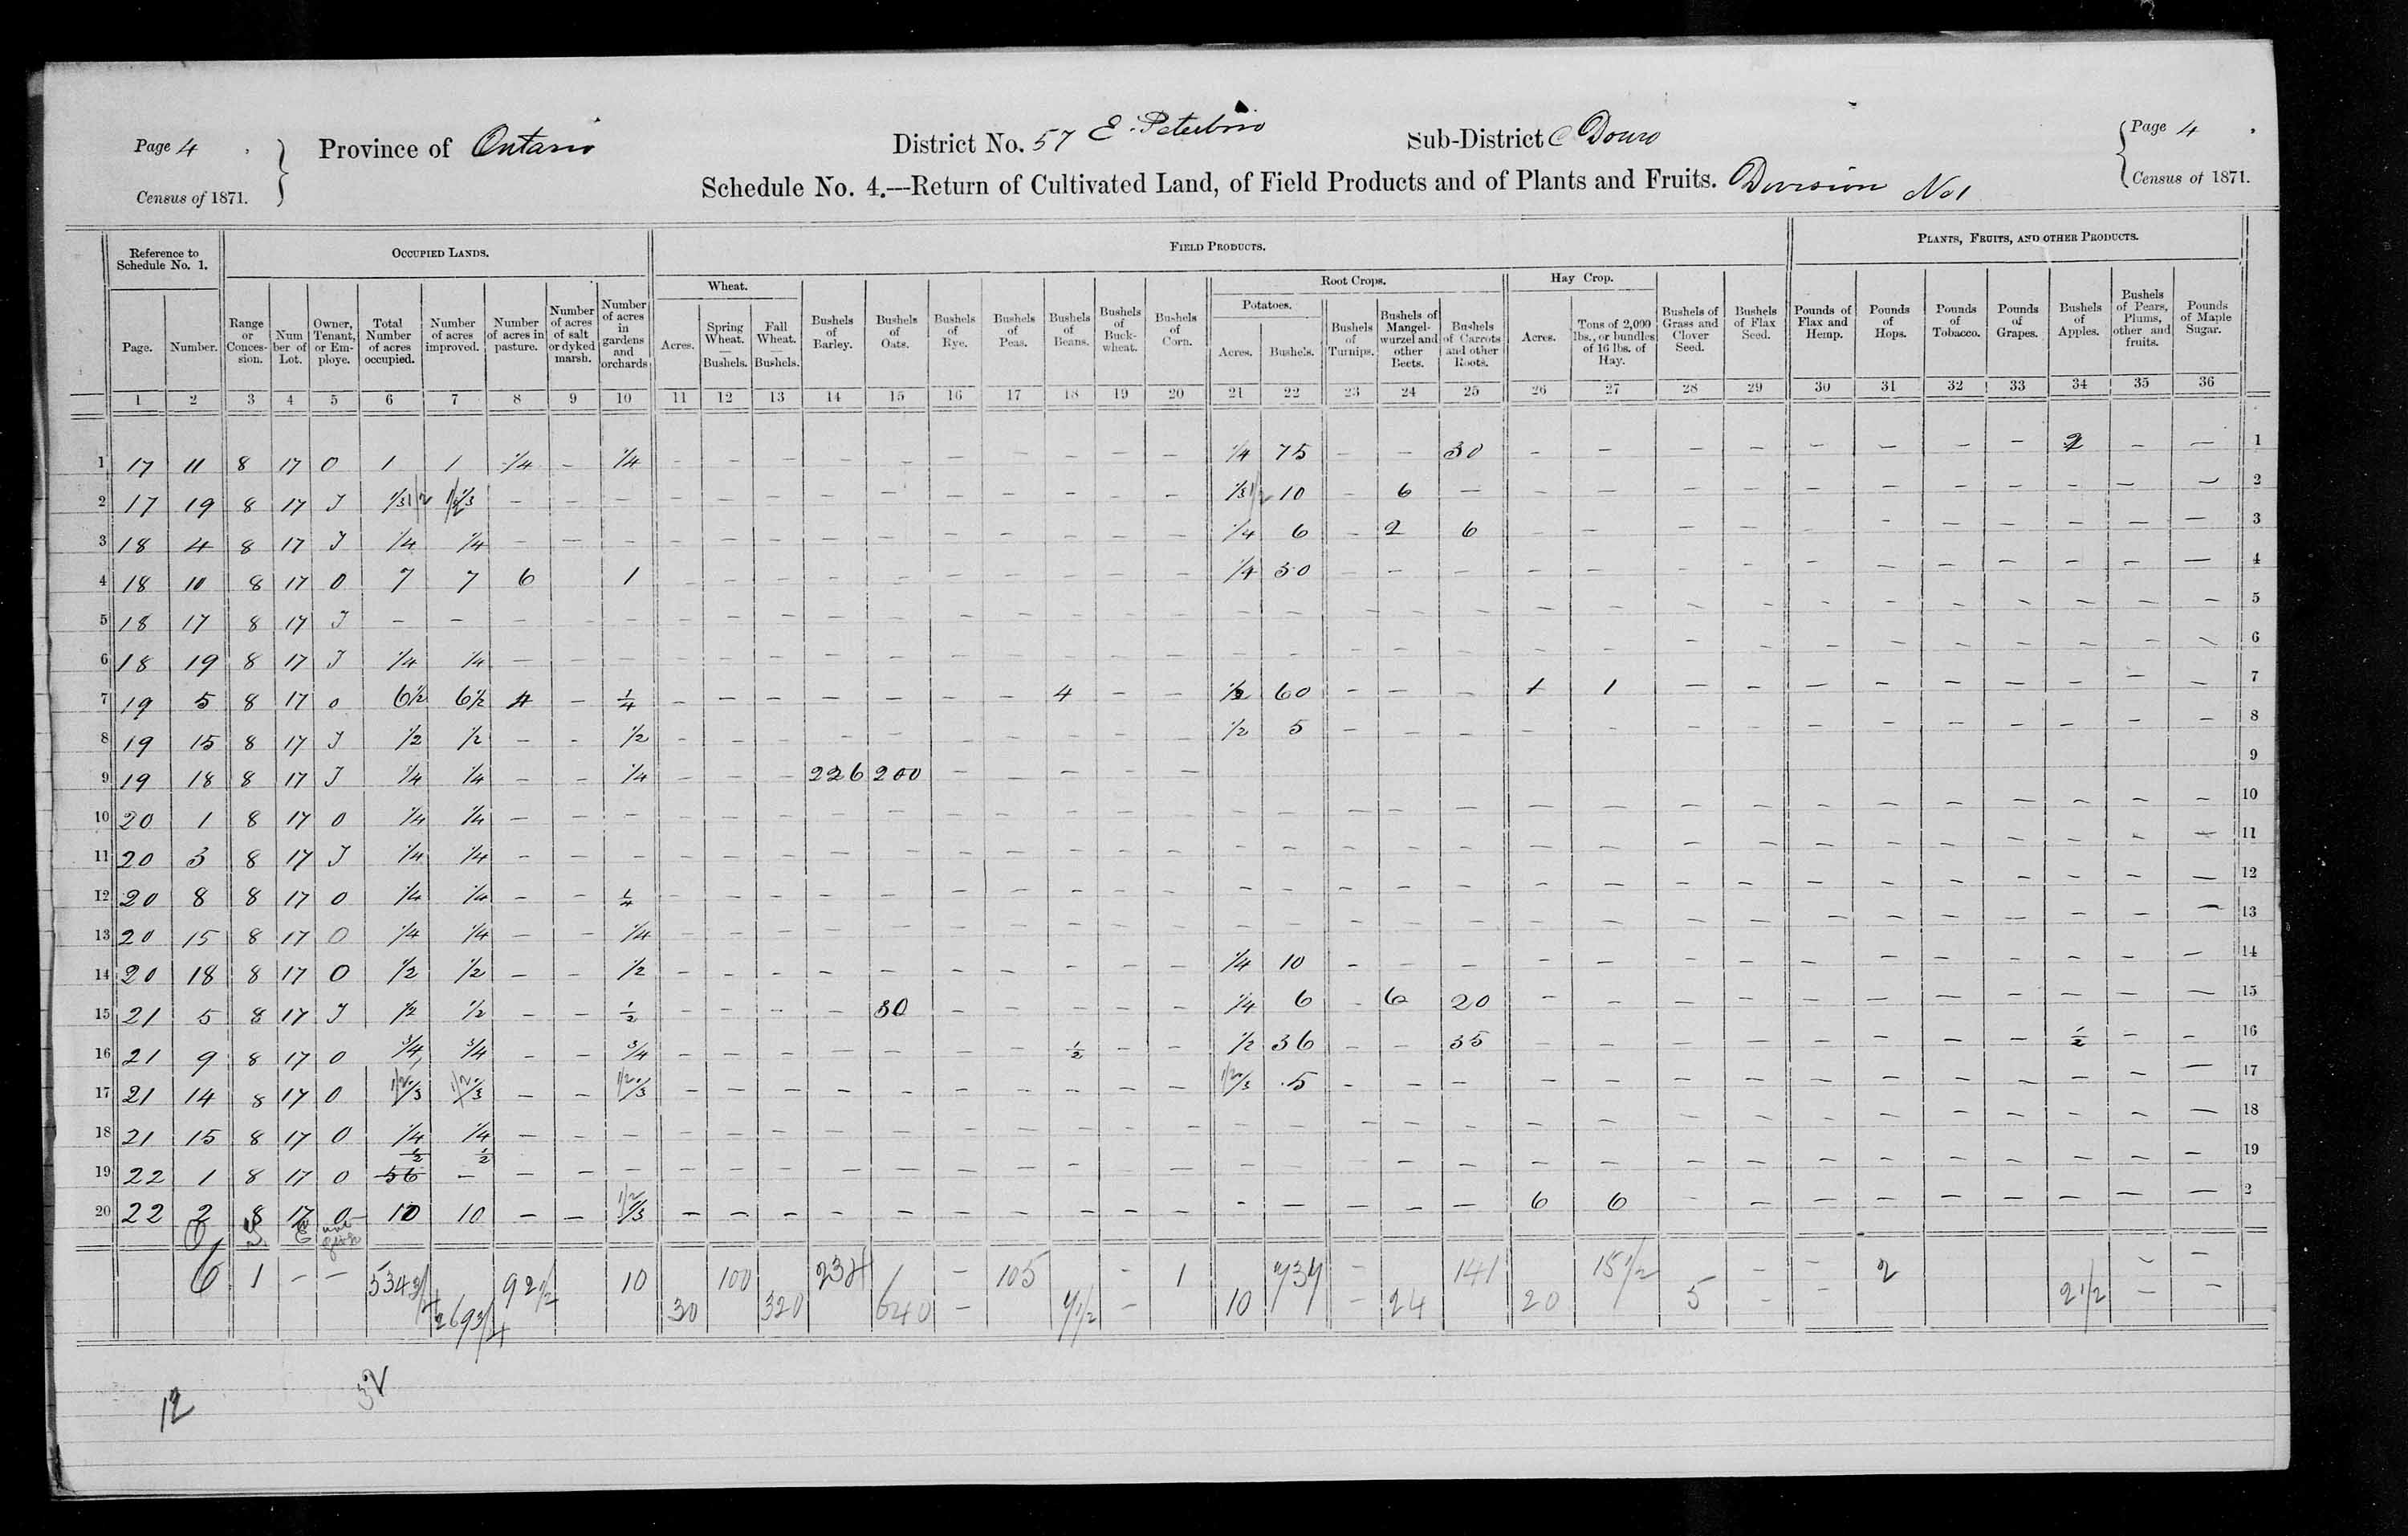 Page 4
Census of 1871.
Province of Ontario
District No. 57 E. Peterboro
Sub-District C Douro
Page 4
Census of 1871.
Schedule No. 4.---Return of Cultivated Land, of Field Products and of Plants and Fruits. Division No 1
Reference to Schedule No. 1.
OCCUPIED LANDS.
FIELD PRODUCTS.
PLANTS, FRUITS, AND OTHER PRODUCTS.
Wheat.
Root Crops.
Potatoes.
Hay Crop.
Page.
Number.
Range or Conces-sion.
Num ber of Lot.
Owner, Tenant, or Em-ploye.
Total Number of acres occupied.
Number of acres improved.
Number of acres in pasture.
Number of acres of salt or dyked marsh.
Number of acres in gardens and orchards
Acres.
Spring Wheat. — Bushels.
Fall Wheat. — Bushels.
Bushels of Barley.
Bushels of Oats.
Bushels of Rye.
Bushels of Peas.
Bushels of Beans.
Bushels of Buck-wheat.
Bushels of Corn.
Acres.
Bushels.
Bushels of Turnips.
Bushels of Mangel-wurzel and other Beets.
Bushels of Carrots and other Roots.
Acres.
Tons of 2,000 lbs., or bundles of 16 lbs. of Hay.
Bushels of Grass and Clover Seed.
Bushels of Flax Seed.
Pounds of Flax and Hemp.
Pounds of Hops.
Pounds of Tobacco.
Pounds of Grapes.
Bushels of Apples.
Bushels of Pears, Plums, other and fruits.
Pounds of Maple Sugar.
1 2 3 4 5 6 7 8 9 10 11 12 13 14 15 16 17 18 19 20 21 22 23 24 25 26 27 28 29 30 31 32 33 34 35 36
1 17 11 8 17 O 1 1 1/4 - 1/4 - - - - - - - - - - 1/4 75 - - 30 - - - - - - - - 2 - - 1
2 17 19 8 17 T 1/3 1/2 1/2 1/3 - - - - - - - - - - - - - 1/3 1/2 10 - 6 - - - - - - - - - - - - 2
3 18 4 8 17 T 1/4 1/4 - - - - - - - - - - - - - 1/4 6 - 2 6 - - - - - - - - - - - 3
4 18 10 8 17 O 7 7 6 1 - - - - - - - - - - 1/4 50 - - - - - - - - - - - - - - 4
5 18 17 8 17 T - - - - - - - - - - - - - - - - - - - - - - - - - - - - - - - 5
6 18 19 8 17 T 1/4 1/4 - - - - - - - - - - - - - - - - - - - - - - - - - - - - - 6
7 19 5 8 17 O 6 1/2 6 1/2 4 - 1/4 - - - - - - - 4 - - 1/2 60 - - - 1 1 - - - - - - - - - 7
8 19 15 8 17 T 1/2 1/2 - - 1/2 - - - - - - - - - - 1/2 5 - - - - - - - - - - - - - - 8
9 19 18 8 17 T 1/4 1/4 - - 1/4 - - - 226 200 - - - - - 9
10 20 1 8 17 O 1/4 1/4 - - - - - - - - - - - - - - - - - - - - - - - - - - - - - 10
11 20 3 8 17 T 1/4 1/4 - - - - - - - - - - - - - - - - - - - - - - - - - - - - - 11
12 20 8 8 17 O 1/4 1/4 - - 1/4 - - - - - - - - - - - - - - - - - - - - - - - - - - 12
13 20 15 8 17 O 1/4 1/4 - - 1/4 - - - - - - - - - - - - - - - - - - - - - - - - - - 13
14 20 18 8 17 O 1/2 1/2 - - 1/2 - - - - - - - - - - 1/4 10 - - - - - - - - - - - - - - 14
15 21 5 8 17 T 1/2 1/2 - - 1/2 - - - - 80 - - - - - 1/4 6 - 6 20 - - - - - - - - - - - 15
16 21 9 8 17 O 3/4 3/4 - - 3/4 - - - - - - - 1/2 - - 1/2 36 - - 35 - - - - - - - - 1/2 - - 16
17 21 14 8 17 O 1/2 1/3 1/2 1/3 - - 1/2 1/3 - - - - - - - - - - 1/2 1/3 5 - - - - - - - - - - - - - - 17
18 21 15 8 17 O 1/4 1/4 - - - - - - - - - - - - - - - - - - - - - - - - - - - - - 18
19 22 1 8 17 O 56 1/2 - 1/2 - - - - - - - - - - - - - - - - - - - - - - - - - - - - - 19
20 22 2 8 17 O 10 10 - - 1/2 1/3 - - - - - - - - - - - - - - - 6 6 - - - - - - - - - 2
O T E
6 1 - - 534 3/4 269 3/4 92 1/2 10 30 100 320 234 640 - 105 7 1/2 - 1 10 737 - 24 141 20 15 1/2 5 - - 2 2 1/2 - -
12
32